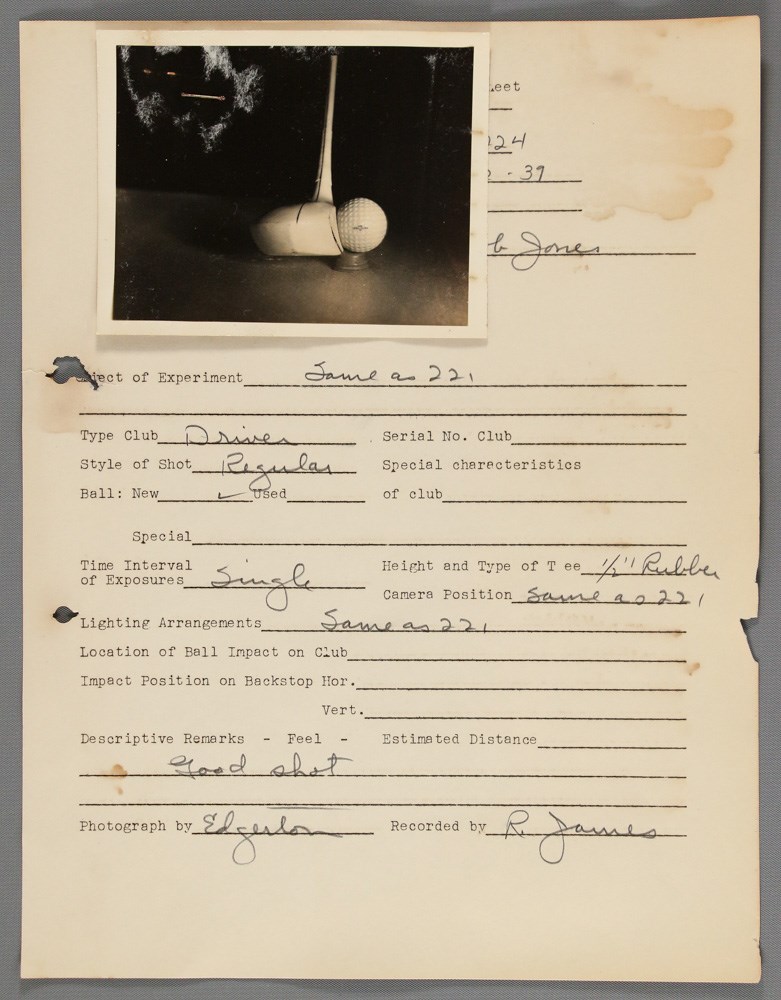 eet
224
- 39
b Jones
ject of Experiment Same as 221
Type Club Driver Serial No. Club
Style of Shot Regular Special characteristics
Ball: New ✓ Used of club
Special
Time Interval Height and Type of Tee 1/2" Rubber
of Exposures Single
Camera Position Same as 221
Lighting Arrangements Same as 221
Location of Ball Impact on Club
Impact Position on Backstop Hor.
Vert.
Descriptive Remarks - Feel - Estimated Distance
Good shot
Photograph by Edgerton Recorded by R. James